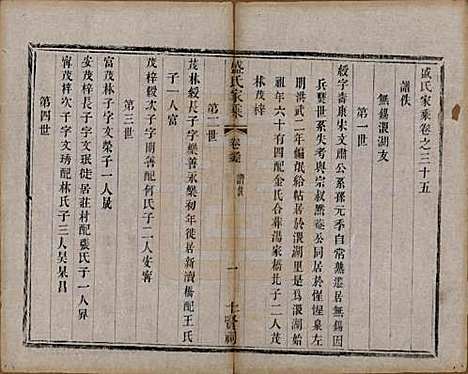 盛氏家乘卷之三十五
譜秩
無錫滆湖支
第一世
毅字壽康宋文肅公系孫元季自常熟遷居無錫因
兵燹世系失考與宗叔熙菴公同居於惺惺泉左
明洪武二年編氓給帖居於滆湖里是為滆湖支
祖年六十有四配金氏合葬湯家橋北子二人茂
林茂梓
第二世
茂林毅長子字樂善永樂初年徙居新瀆橋配王氏
子一人富
茂梓毅次子字明善配何氏子二人安甯
第三世
富茂林子字文榮子一人晟
安茂梓長子字文珉徙居莊村配張氏子一人界
甯茂梓次子字文琇配林氏子三人昊杲昌
第四世
盛氏家乘
卷三十五
譜秩
一
士賢祠